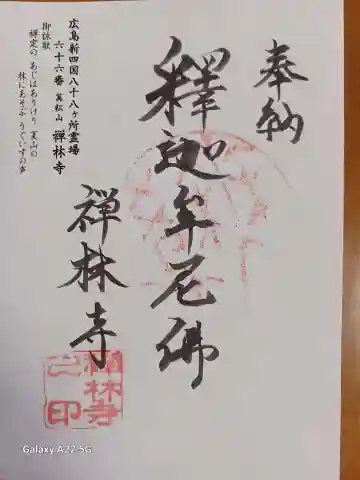 奉納
釋迦牟尼佛
禅林寺
広島新四国八十八ヶ所霊場
六十六番 萬松山 禅林寺
御詠歌
禅定の あじはありけり 夏山の
林にあそぶ うぐいすの声
禅林寺之印
Galaxy A22 5G